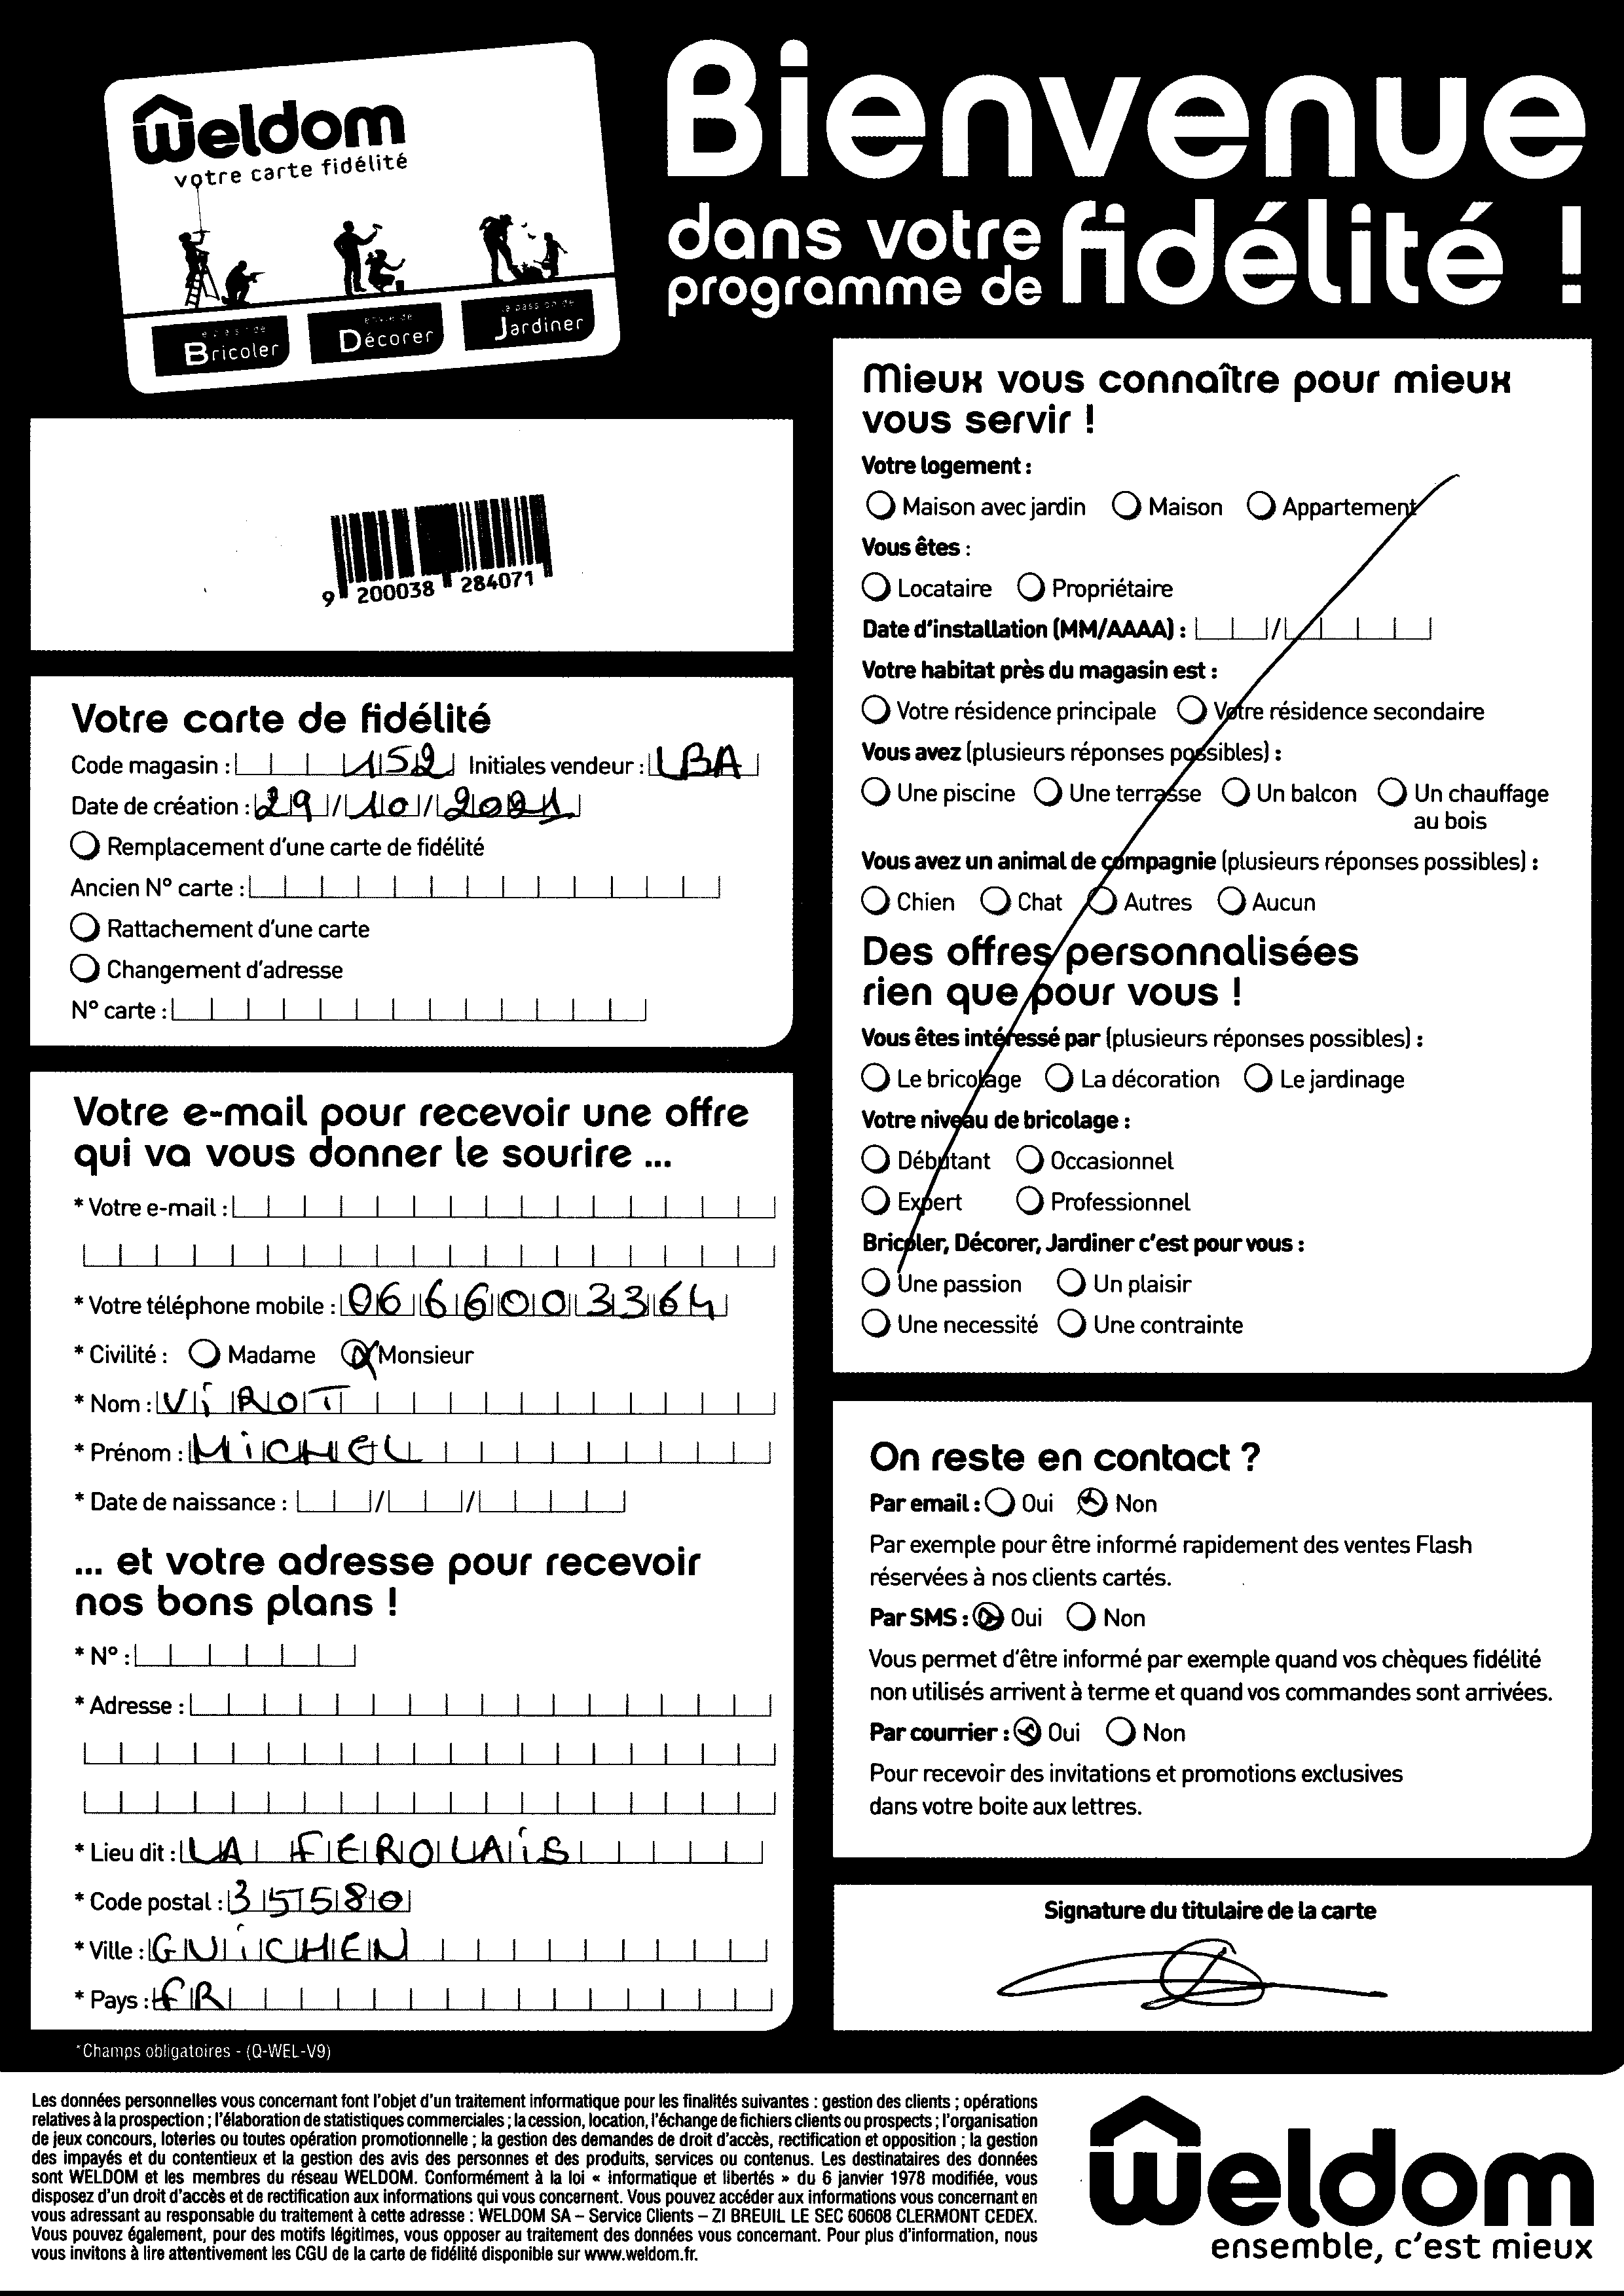 Weldom
votre carte fidélité
Bricoler
Décorer
Jardiner
Bienvenue
dans votre
programme de fidélité !
9 200038 284071
Votre carte de fidélité
Code magasin : 152 Initiales vendeur : LBA
Date de création : 29/10/2021
Remplacement d'une carte de fidélité
Ancien N° carte :
Rattachement d'une carte
Changement d'adresse
N° carte :
Votre e-mail pour recevoir une offre
qui va vous donner le sourire ...
* Votre e-mail :
* Votre téléphone mobile : 0666003364
* Civilité : Madame Monsieur
* Nom : ViROT
* Prénom : MiCHEL
* Date de naissance : / /
... et votre adresse pour recevoir
nos bons plans !
* N° :
* Adresse :
* Lieu dit : LA FEROUAiS
* Code postal : 35580
* Ville : GUiCHEN
* Pays : FR
*Champs obligatoires - (Q-WEL-V9)
Mieux vous connaître pour mieux
vous servir !
Votre logement :
Maison avec jardin Maison Appartement
Vous êtes :
Locataire Propriétaire
Date d'installation (MM/AAAA) : /
Votre habitat près du magasin est :
Votre résidence principale Votre résidence secondaire
Vous avez (plusieurs réponses possibles) :
Une piscine Une terrasse Un balcon Un chauffage
au bois
Vous avez un animal de compagnie (plusieurs réponses possibles) :
Chien Chat Autres Aucun
Des offres personnalisées
rien que pour vous !
Vous êtes intéressé par (plusieurs réponses possibles) :
Le bricolage La décoration Le jardinage
Votre niveau de bricolage :
Débutant Occasionnel
Expert Professionnel
Bricoler, Décorer, Jardiner c'est pour vous :
Une passion Un plaisir
Une necessité Une contrainte
On reste en contact ?
Par email : Oui Non
Par exemple pour être informé rapidement des ventes Flash
réservées à nos clients cartés.
Par SMS : Oui Non
Vous permet d'être informé par exemple quand vos chèques fidélité
non utilisés arrivent à terme et quand vos commandes sont arrivées.
Par courrier : Oui Non
Pour recevoir des invitations et promotions exclusives
dans votre boite aux lettres.
Signature du titulaire de la carte
Les données personnelles vous concernant font l'objet d'un traitement informatique pour les finalités suivantes : gestion des clients ; opérations
relatives à la prospection ; l'élaboration de statistiques commerciales ; la cession, location, l'échange de fichiers clients ou prospects ; l'organisation
de jeux concours, loteries ou toutes opération promotionnelle ; la gestion des demandes de droit d'accès, rectification et opposition ; la gestion
des impayés et du contentieux et la gestion des avis des personnes et des produits, services ou contenus. Les destinataires des données
sont WELDOM et les membres du réseau WELDOM. Conformément à la loi « informatique et libertés » du 6 janvier 1978 modifiée, vous
disposez d'un droit d'accès et de rectification aux informations qui vous concernent. Vous pouvez accéder aux informations vous concernant en
vous adressant au responsable du traitement à cette adresse : WELDOM SA – Service Clients – ZI BREUIL LE SEC 60608 CLERMONT CEDEX.
Vous pouvez également, pour des motifs légitimes, vous opposer au traitement des données vous concernant. Pour plus d'information, nous
vous invitons à lire attentivement les CGU de la carte de fidélité disponible sur www.weldom.fr.
Weldom
ensemble, c'est mieux